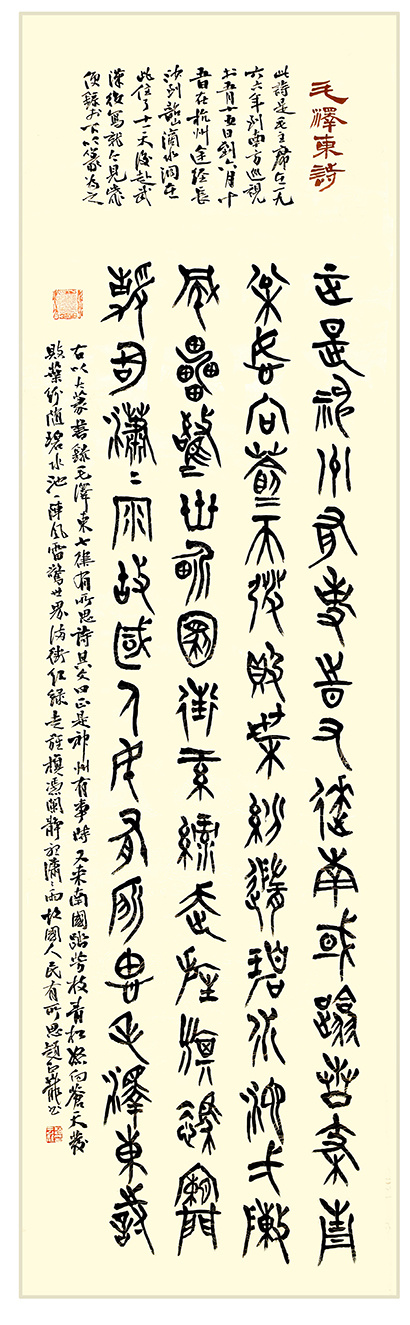 毛澤東詩
此詩是毛主席在一九
六六年到南方巡視
於五月十五日到六月十
五日在杭州途經長
沙到韶山滴水洞在
此住了十一天後赴武
漢後寫就今見
便錄於下以備為之
正是神州有事時又來南或踏芳枝青
松怒向蒼天發敗葉紛隨碧水池一陣
風雷驚世界滿街紅綠走旌旗憑闌
靜聽瀟瀟雨故國人民有所思毛澤東詩
右以大篆書錄毛澤東七律有所思詩其文曰正是神州有事時又來南國踏芳枝青松怒向蒼天發
敗葉紛隨碧水池一陣風雷驚世界滿街紅綠走旌旗憑闌靜聽瀟瀟雨故國人民有所思